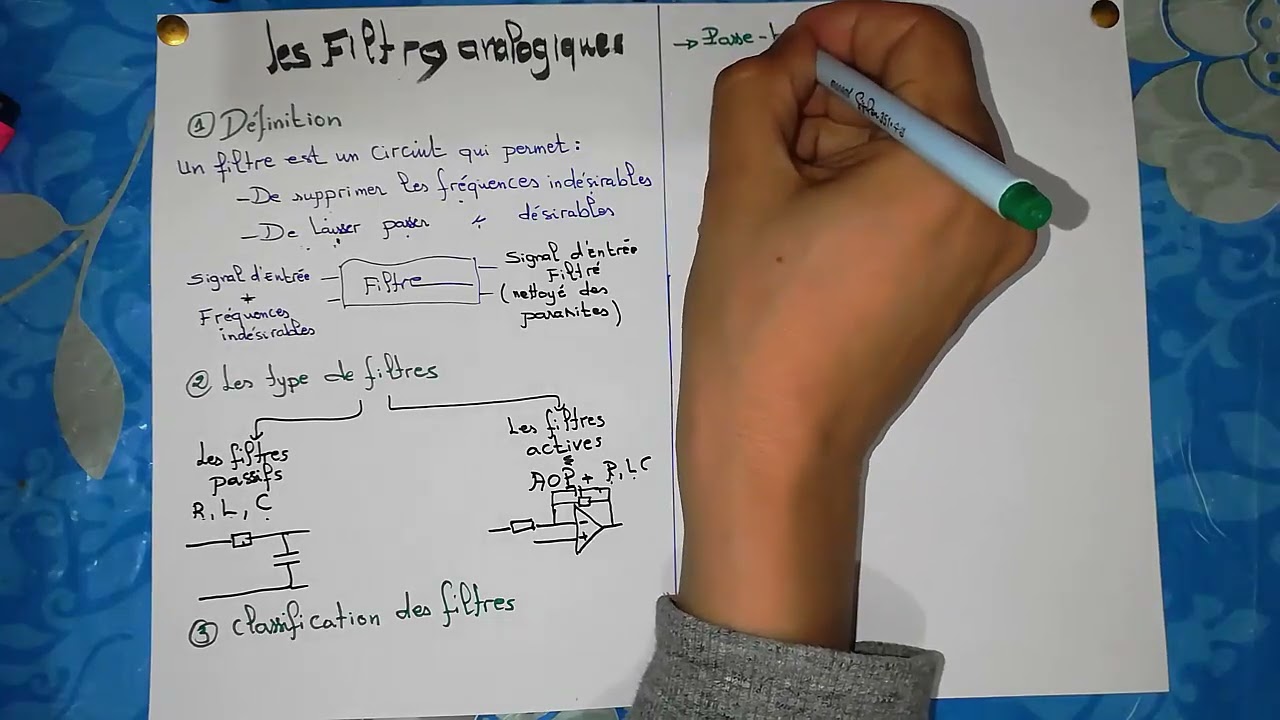 les Filtres analogiques
① Définition
Un filtre est un circiut qui permet:
- De supprimer les fréquences indésirables
- De laisser passer " désirables
Signal d'entrée
+
Fréquences
indésirables
Filtre
Signal d'Entrée
Filtré
(nettoyé des
parasites)
② Les type de filtres
Les filtres
passifs
R, L, C
Les filtres
actives
AOP + R, L C
③ Classification des filtres
→ Passe-b